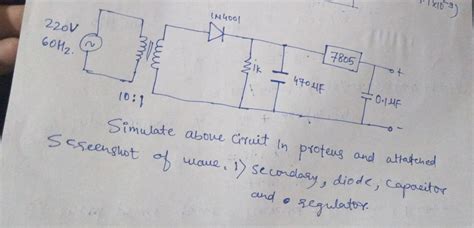 1N4001
220V
60Hz.
7805
+
1k
470µF
0.1µF
10:1
+
-
Simulate above Circuit in proteus and attatched
Screenshot of wave. 1) secondary, diode, capacitor
and regulator.